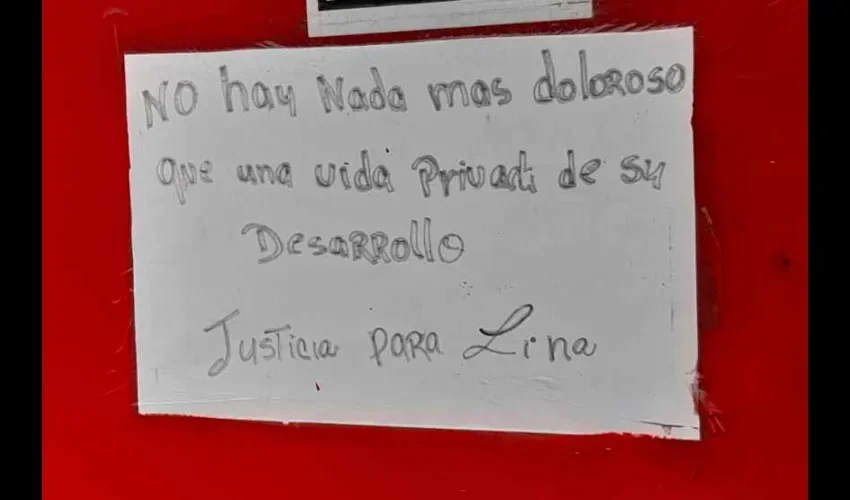 NO hay Nada mas doloroso
que una vida Privada de su
Desarrollo
Justicia para Lina